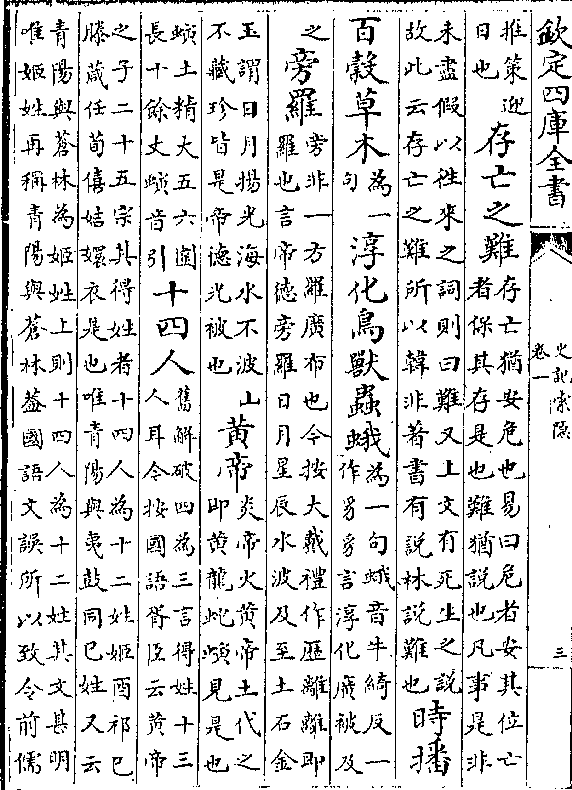 欽定四庫全書
史記索隱
卷一
三
推策迎
日也
存亡之難
存亡猶安危也易曰危者安其位亡
者保其存是也難猶說也凡事是非
未盡假以往來之詞則曰難又上文有死生之說
故此云存亡之難所以韓非著書有說林說難也
時播
百穀草木
為一
句
淳化鳥獸蟲蛾
為一句蛾音牛綺反一
作豸豸言淳化廣被及
之
旁羅
旁非一方羅廣布也今按大戴禮作歷離離即
羅也言帝德旁羅日月星辰水波及至土石金
玉謂日月揚光海水不波山
不藏珍皆是帝德光被也
黃帝
炎帝火黃帝土代之
即黃龍地螾見是也
螾土精大五六圍
長十餘丈螾音引
十四人
舊解破四為三言得姓十三
人耳今按國語胥臣云黃帝
之子二十五宗其得姓者十四人為十二姓姬酉祁己
滕葴任荀僖姞嬛衣是也唯青陽與夷鼓同己姓又云
青陽與蒼林為姬姓上則十四人為十二姓其文甚明
唯姬姓再稱青陽與蒼林蓋國語文誤所以致令前儒